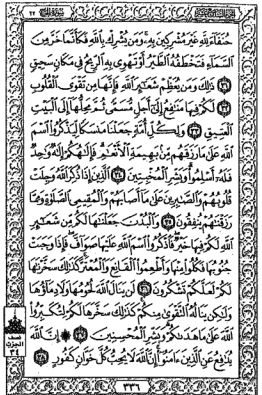 حُنَفَآءَ لِلَّهِ غَيْرَ مُشْرِكِينَ بِهِۦ وَمَن يُشْرِكْ بِٱللَّهِ فَكَأَنَّمَا خَرَّ مِنَ
ٱلسَّمَآءِ فَتَخْطَفُهُ ٱلطَّيْرُ أَوْ تَهْوِى بِهِ ٱلرِّيحُ فِى مَكَانٍ سَحِيقٍ
٣١ ذَٰلِكَ وَمَن يُعَظِّمْ شَعَٰٓئِرَ ٱللَّهِ فَإِنَّهَا مِن تَقْوَى ٱلْقُلُوبِ
٣٢ لَكُمْ فِيهَا مَنَٰفِعُ إِلَىٰٓ أَجَلٍ مُّسَمًّى ثُمَّ مَحِلُّهَآ إِلَى ٱلْبَيْتِ
ٱلْعَتِيقِ ٣٣ وَلِكُلِّ أُمَّةٍ جَعَلْنَا مَنسَكًا لِّيَذْكُرُوا۟ ٱسْمَ
ٱللَّهِ عَلَىٰ مَا رَزَقَهُم مِّنۢ بَهِيمَةِ ٱلْأَنْعَٰمِ فَإِلَٰهُكُمْ إِلَٰهٌ وَٰحِدٌ
فَلَهُۥٓ أَسْلِمُوا۟ وَبَشِّرِ ٱلْمُخْبِتِينَ ٣٤ ٱلَّذِينَ إِذَا ذُكِرَ ٱللَّهُ وَجِلَتْ
قُلُوبُهُمْ وَٱلصَّٰبِرِينَ عَلَىٰ مَآ أَصَابَهُمْ وَٱلْمُقِيمِى ٱلصَّلَوٰةِ وَمِمَّا
رَزَقْنَٰهُمْ يُنفِقُونَ ٣٥ وَٱلْبُدْنَ جَعَلْنَٰهَا لَكُم مِّن شَعَٰٓئِرِ
ٱللَّهِ لَكُمْ فِيهَا خَيْرٌ فَٱذْكُرُوا۟ ٱسْمَ ٱللَّهِ عَلَيْهَا صَوَآفَّ فَإِذَا وَجَبَتْ
جُنُوبُهَا فَكُلُوا۟ مِنْهَا وَأَطْعِمُوا۟ ٱلْقَانِعَ وَٱلْمُعْتَرَّ كَذَٰلِكَ سَخَّرْنَٰهَا
لَكُمْ لَعَلَّكُمْ تَشْكُرُونَ ٣٦ لَن يَنَالَ ٱللَّهَ لُحُومُهَا وَلَا دِمَآؤُهَا
وَلَٰكِن يَنَالُهُ ٱلتَّقْوَىٰ مِنكُمْ كَذَٰلِكَ سَخَّرَهَا لَكُمْ لِتُكَبِّرُوا۟
ٱللَّهَ عَلَىٰ مَا هَدَىٰكُمْ وَبَشِّرِ ٱلْمُحْسِنِينَ ٣٧ ۞ إِنَّ ٱللَّهَ
يُدَٰفِعُ عَنِ ٱلَّذِينَ ءَامَنُوٓا۟ إِنَّ ٱللَّهَ لَا يُحِبُّ كُلَّ خَوَّانٍ كَفُورٍ ٣٨
نصف
الحزب
٣٤
٣٣٦